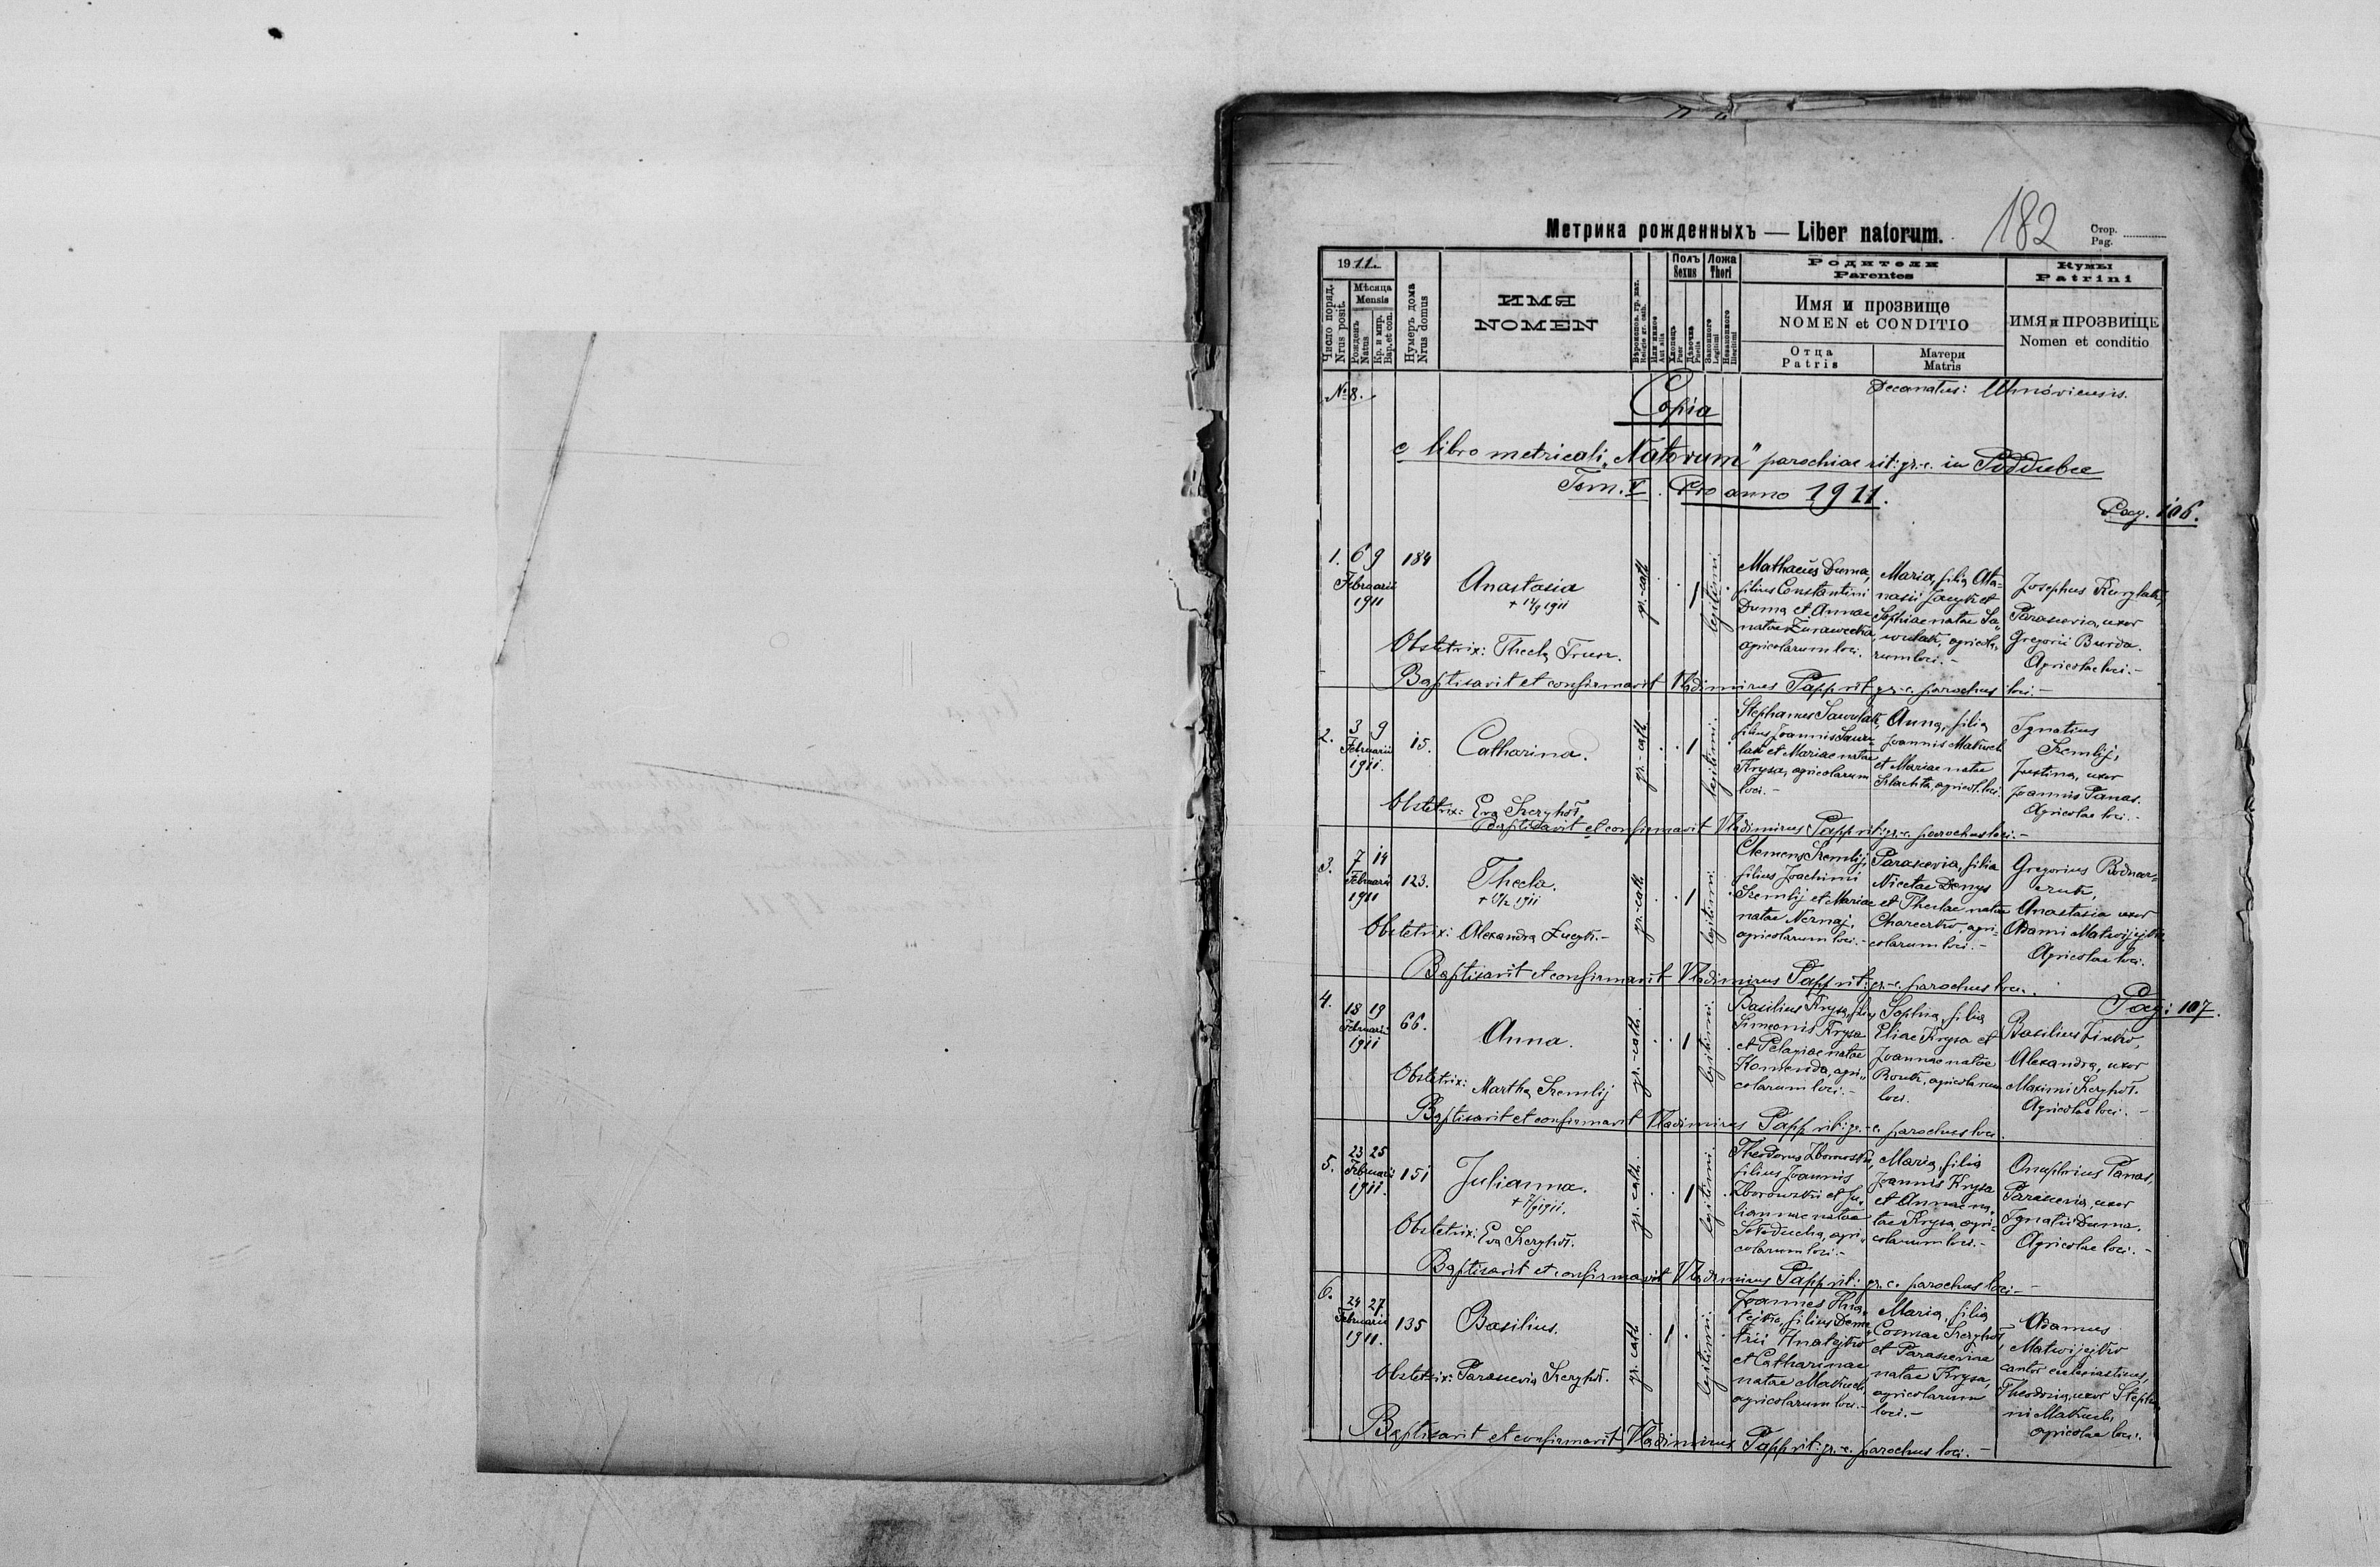 Метрика рожденныхъ — Liber natorum.
182
Стор.
Pag.
1911.
Число поряд.
Nrus posit.
Мѣсяца
Mensis
Рожденъ
Natus
Кр. и мир.
Bap. et con.
Нумеръ дома
Nrus domus
ИМЯ
NOMEN
Вѣроиспов. гр. кат.
Religio gr. cath.
Или инное
Aut alia
Полъ
Sexus
Хлопець
Puer
Дѣвочка
Puella
Ложа
Thori
Законного
Legitimi
Незаконного
Illegitimi
Родители
Parentes
Имя и прозвище
NOMEN et CONDITIO
Отца
Patris
Матери
Matris
Кумы
Patrini
ИМЯ и ПРОЗВИЩЕ
Nomen et conditio
№ 8.
Decanatus: Uhnóviensis.
Copia
e libro metricali „Natorum" parochiae rit: gr.-c. in Poddubce
Tom. V. Pro anno 1911.
Pag. 106.
1. 6 9 184
Februarii
1911
Anastasia
gr.-cath
1
legitimi
Mathaeus Duma,
filius Constantini
Duma et Annae
natae Żurawecka,
agricolarum loci.
Maria, filia Ata-
nasii Jacyk et
Sophiae natae Sa-
wulak, agricola-
rum loci.-
Josephus Kurylak,
Parascevia, uxor
Gregorii Burda.
Agricolae loci.-
Obstetrix: Thecla
Baptisavit et confirmavit Vladimirus Papp rit gr.-c. parochus loci.-
2. 3 9 15.
Februarii
1911.
Catharina.
gr.-cath
1
legitimi.
Stephanus Sawulak,
filius Joannis Sawu-
lak et Mariae natae
Krysa, agricolarum
loci.-
Anna, filia
Joannis Makuch
et Mariae natae
Szlachta, agricol. loci.
Ignatius
Sremlij,
Justina, uxor
Joannis Panas.
Agricolae loci.-
Obstetrix: Eva
Baptisavit et confirmavit Vladimirus Papp rit: gr.-c. parochus loci.-
3. 7 14 123.
Februarii
1911
Thecla.
gr.-cath.
1
legitimi
Clemens Sremlij,
filius Joachimi
Sremlij et Mariae
natae
agricolarum loci.-
Parascevia, filia
Nicetae Denys
et Theclae natae
agri-
colarum loci.-
Gregorius Bodnar-
czuk,
Anastasia uxor
Adami Matwijejko,
Agricolae loci.
Obstetrix: Alexandra
Baptisavit et confirmavit Vladimirus Papp rit: gr.-c. parochus loci.
Pag: 107.
4. 18 19 66.
Februarii
1911
Anna.
gr.-cath.
1
legitimi
Basilius Krysa, filius
Simeonis Krysa
et Pelagiae natae
Komenda, agri-
colarum loci.-
Sophia, filia
Eliae Krysa et
Joannae natae
agricolarum
loci.
Basilius
Alexandra, uxor
Maximi
Agricolae loci.-
Obstetrix: Martha Sremlij
Baptisavit et confirmavit Vladimirus Papp rit: gr.-c. parochus loci.
5. 23 25 151
Februarii
1911.
Julianna.
gr. cath.
1
legitimi
Theodorus Zborowski,
filius Joannis
Zborowski et Ju-
liannae natae
Sołoducha, agri-
colarum loci.-
Maria, filia
Joannis Krysa
et Annae na-
tae Krysa, agri-
colarum loci.-
Onuphrius Panas,
Parascevia, uxor
Ignatii Duma.
Agricolae loci.-
Obstetrix: Eva
Baptisavit et confirmavit Vladimirus Papp rit: gr. c. parochus loci.-
6. 24 27 135
Februarii
1911.
Basilius.
gr. cath
1
legitimi.
Joannes Hna-
tejko, filius Deme-
trii Hnatejko
et Catharinae
natae Makuch,
agricolarum loci.-
Maria, filia
Cosmae
et Parasceviae
natae Krysa,
agricolarum
loci.-
Adamus
Matwijejko
cantor ecclesiasticus,
Theodosia, uxor Stepha-
ni Makuch,
agricolae loci.
Obstetrix: Parascevia
Baptisavit et confirmavit Vladimirus Papp rit: gr.-c. parochus loci.-